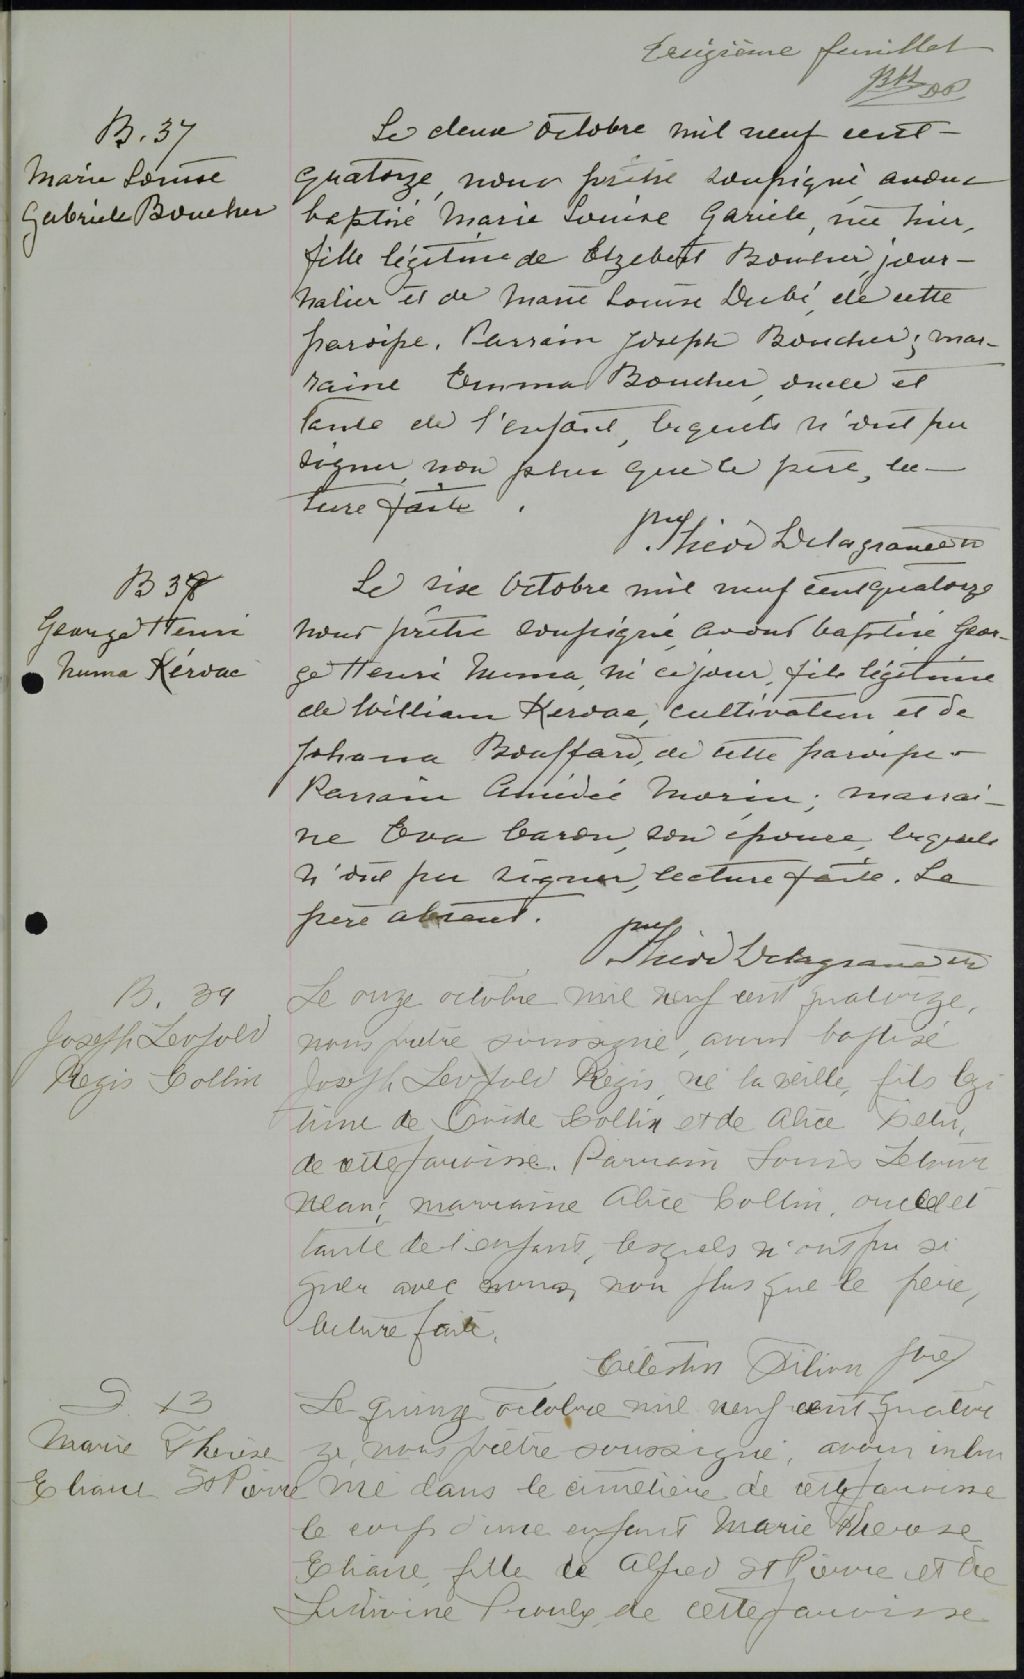 Treizième feuillet
B. 37
Marie Louise
Gabriele Boucher
Le deux octobre mil neuf cent-
quatorze, nous prêtre soussigné, avons
baptisé Marie Louise Gariele, née hier,
fille légitime de Elzebert Boucher, jour-
nalier et de Marie Louise Dubé, de cette
paroisse. Parrain Joseph Boucher; mar-
raine Emma Boucher, oncle et
tante de l'enfant, lesquels n'ont pu
signer, non plus que le père, lec-
ture faite.
Théod Delagrave
B 38
George Henri
Numa Kérvac
Le six octobre mil neuf cent quatorze
nous prêtre soussigné, avons baptisé Geor-
ge Henri Numa, né ce jour, fils légitime
de William Kervac, cultivateur et de
Johana Bouffard, de cette paroisse.
Parrain Amédée Morin; marrai-
ne Eva Caron, son épouse, lesquels
n'ont pu signer, lecture faite. Le
père absent.
Théod Delagrave
B. 39
Joseph Leopold
Regis Collin
Le onze octobre mil neuf cent quatorze,
nous prêtre soussigné, avons baptisé
Joseph Leopold Régis, né la veille, fils legi
time de Ovide Collin et de Alice
de cette paroisse. Parrain Louis Letour
neau; marraine Alice Collin, oncle et
tante de l'enfant, lesquels n'ont pu si
gner avec nous, non plus que le père,
lecture faite.
Célestin Filion ptre
S 13
Marie Therèse
Eliane St Pierre
Le quinze octobre mil neuf cent quator
ze, nous prêtre soussigné, avons inhu
mé dans le cimetière de cette paroisse
le corps d'une enfant Marie Therese
Eliane, fille de Alfred St Pierre et de
Ludivine Proulx, de cette paroisse